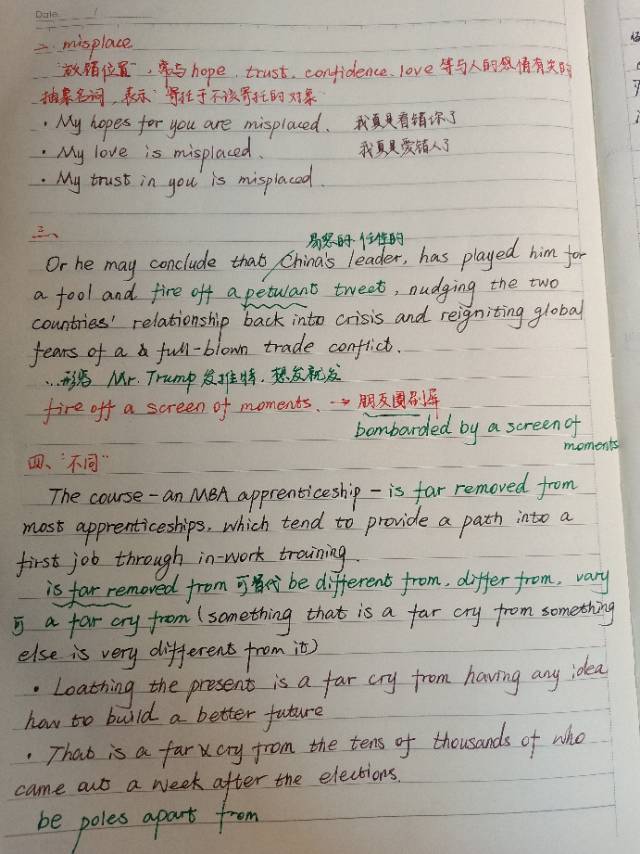 Date. /
二. misplace
"放错位置", 常与hope. trust. confidence. love 等与人的感情有关的
抽象名词, 表示"寄托于不该寄托的对象"
· My hopes for you are misplaced. 我真是看错你了
· My love is misplaced. 我真是爱错人了
· My trust in you is misplaced.
三、
易怒的, 任性的
Or he may conclude that China's leader, has played him for
a fool and fire off a petulant tweet, nudging the two
countries' relationship back into crisis and reigniting global
fears of a full-blown trade conflict.
...形容 Mr. Trump 发推特, 想发就发
fire off a screen of moments. → 朋友圈刷屏
bombarded by a screen of
moments
四、"不同"
The course - an MBA apprenticeship - is far removed from
most apprenticeships, which tend to provide a path into a
first job through in-work training.
is far removed from 可替代 be different from, differ from, vary
可 a far cry from (something that is a far cry from something
else is very different from it)
· Loathing the present is a far cry from having any idea
how to build a better future
· That is a far cry from the tens of thousands of who
came out a week after the elections.
be poles apart from